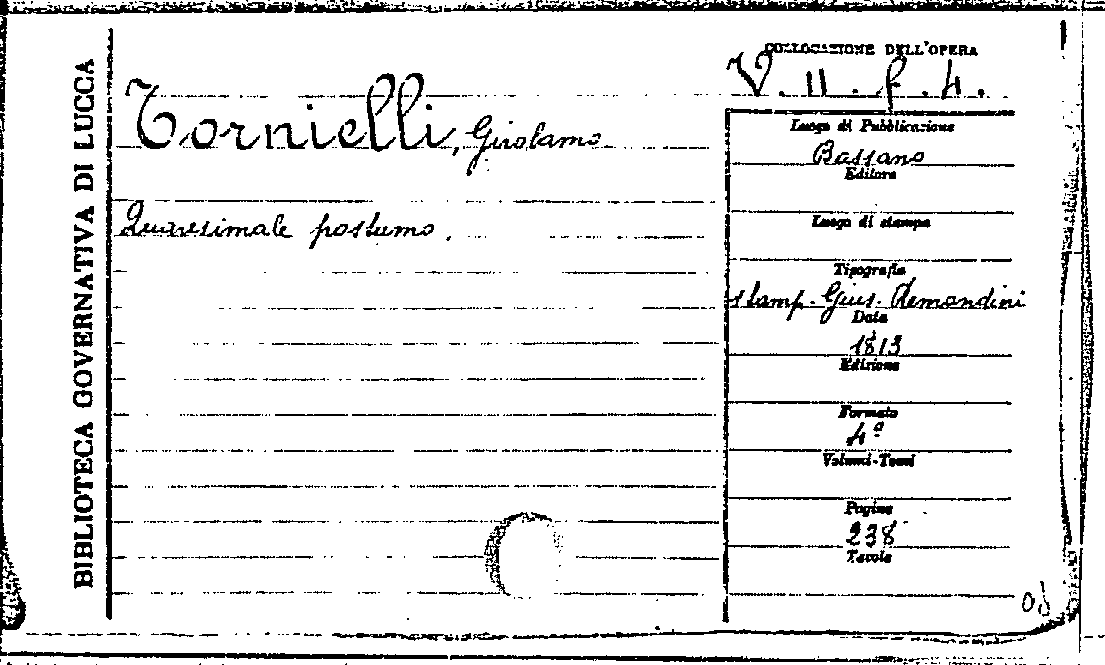 BIBLIOTECA GOVERNATIVA DI LUCCA
COLLOCAZIONE DELL'OPERA
V. II. f. 4.
Tornielli, Girolamo.
Quaresimale postumo.
Luogo di Pubblicazione
Bassano
Editore
Luogo di stampa
Tipografia
stamp. Gius. Remondini
Data
1813
Edizione
Formato
4º
Volumi-Tomi
Pagine
238
Tavole